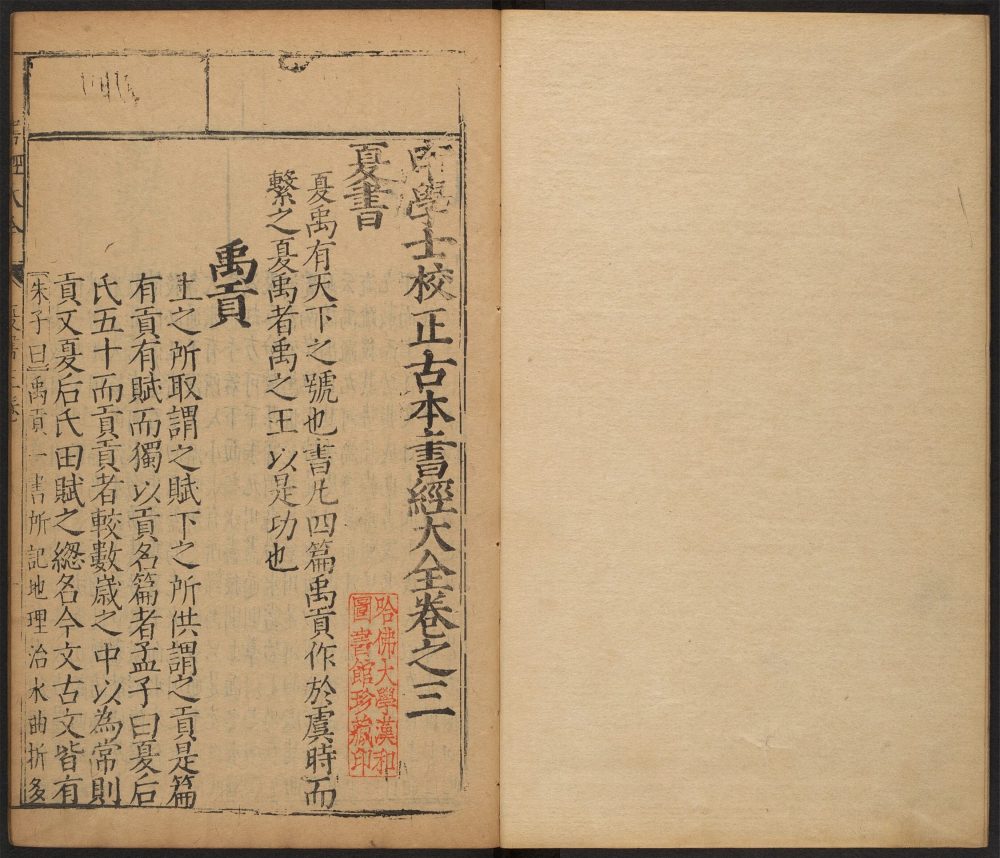 申學士校正古本書經大全卷之三
哈佛大學漢和
圖書館珍藏印
夏書
夏禹有天下之號也書凡四篇禹貢作於虞時而
繫之夏禹者禹之王以是功也
禹貢
上之所取謂之賦下之所供謂之貢是篇
有貢有賦而獨以貢名篇者孟子曰夏后
氏五十而貢貢者較數歲之中以為常則
貢又夏后氏田賦之緫名今文古文皆有
朱子曰禹貢一書所記地理治水曲折多
書經大全